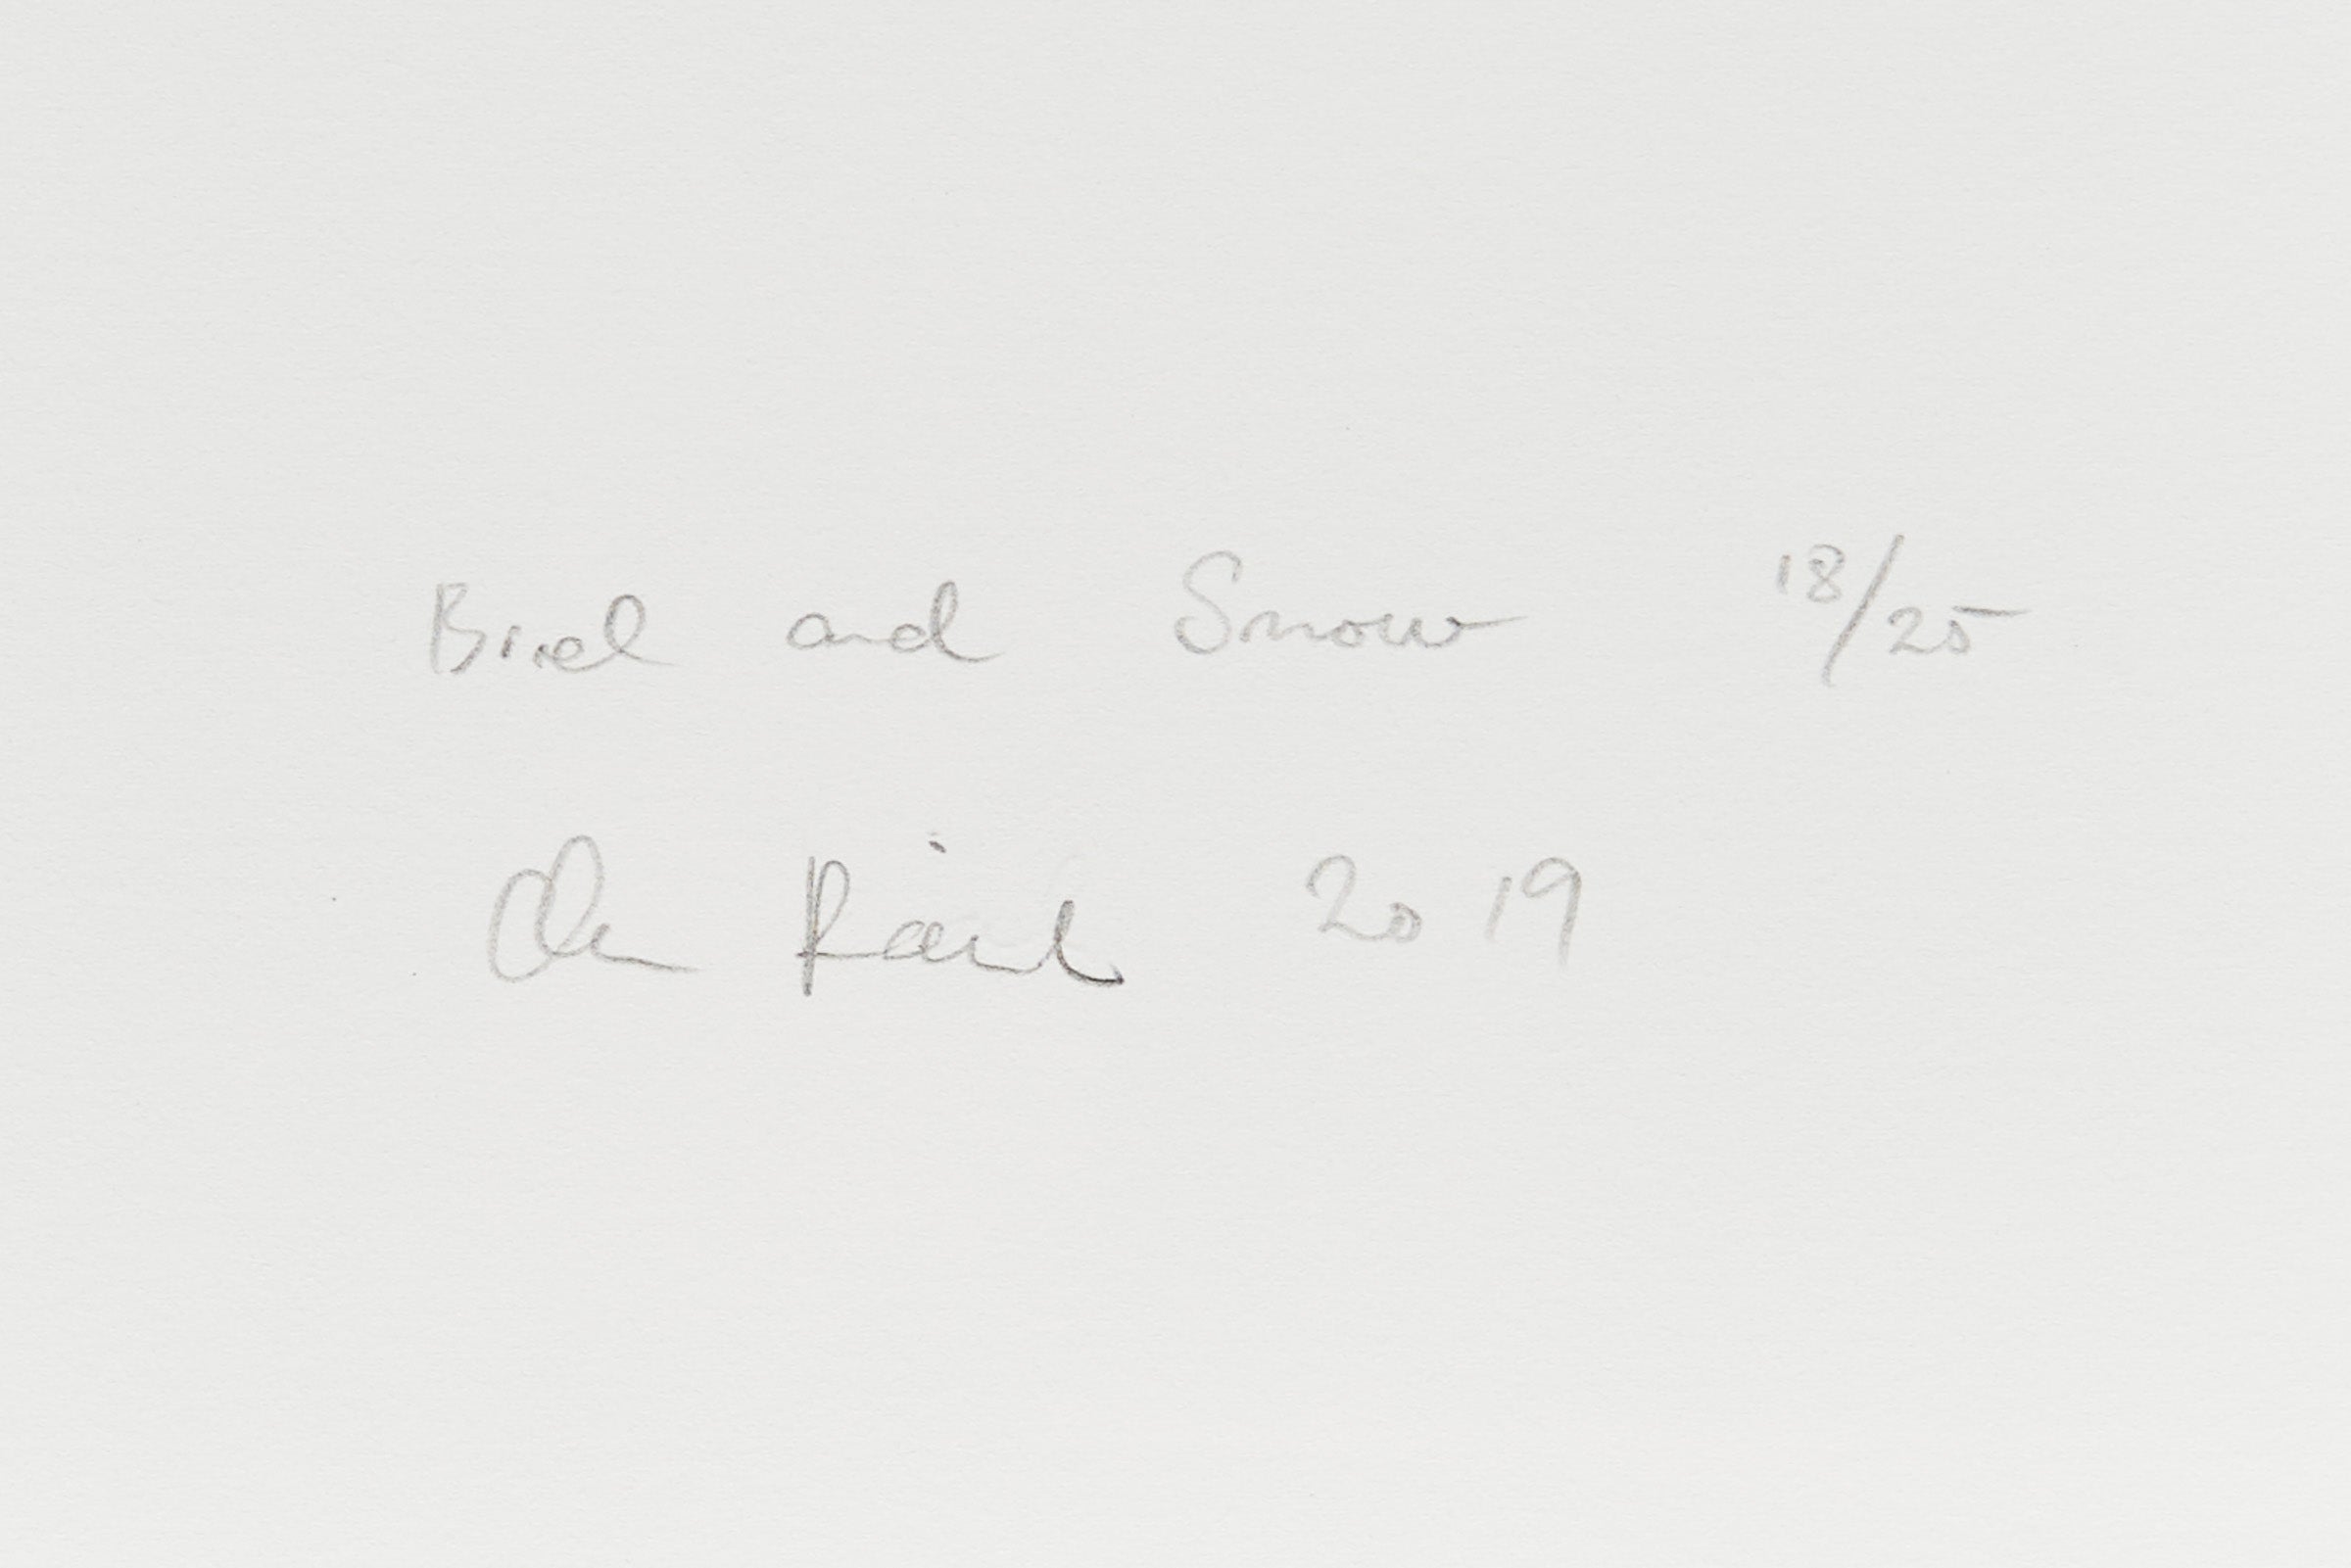 Bird and Snow 18/25
2019